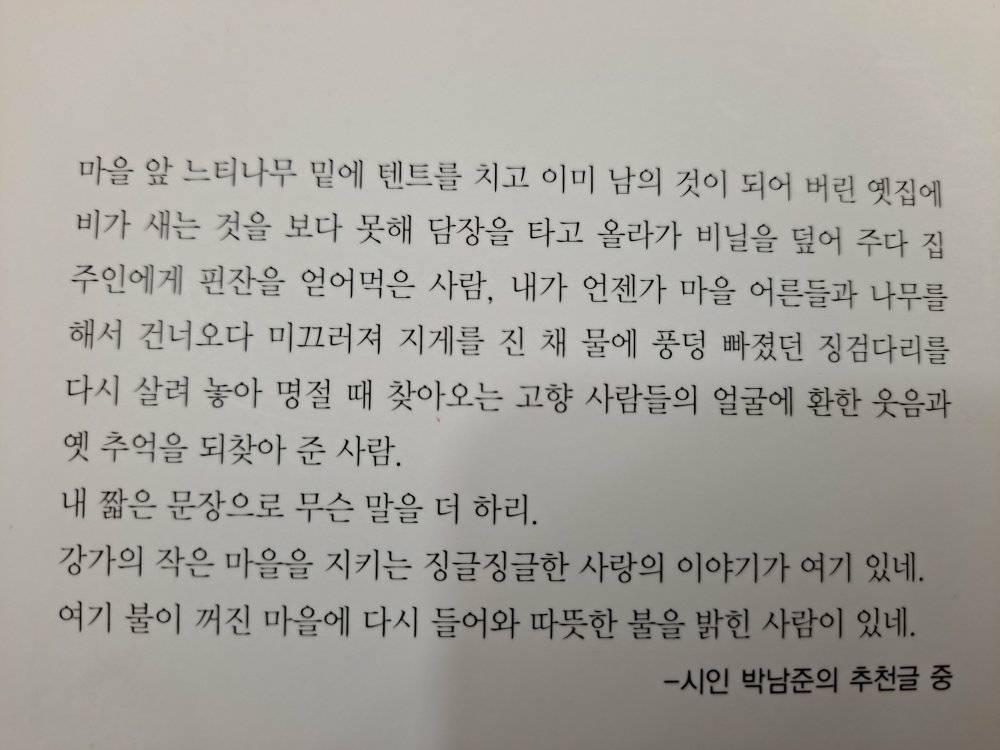 마을 앞 느티나무 밑에 텐트를 치고 이미 남의 것이 되어 버린 옛집에
비가 새는 것을 보다 못해 담장을 타고 올라가 비닐을 덮어 주다 집
주인에게 핀잔을 얻어먹은 사람, 내가 언젠가 마을 어른들과 나무를
해서 건너오다 미끄러져 지게를 진 채 물에 풍덩 빠졌던 징검다리를
다시 살려 놓아 명절 때 찾아오는 고향 사람들의 얼굴에 환한 웃음과
옛 추억을 되찾아 준 사람.
내 짧은 문장으로 무슨 말을 더 하리.
강가의 작은 마을을 지키는 징글징글한 사랑의 이야기가 여기 있네.
여기 불이 꺼진 마을에 다시 들어와 따뜻한 불을 밝힌 사람이 있네.
-시인 박남준의 추천글 중